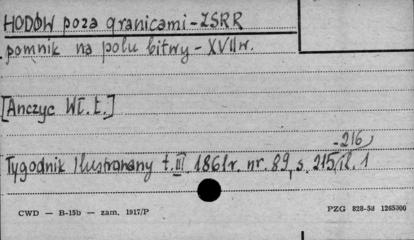 HODÓW poza granicami - ZSRR
pomnik na polu bitwy - XVII w.
[Anczyc Wł. L.]
-216
Tygodnik Ilustrowany t. III 1861r. nr. 89, s. 215, il. 1
CWD — B-15b — zam. 1917/P
PZG 828-58 1265000